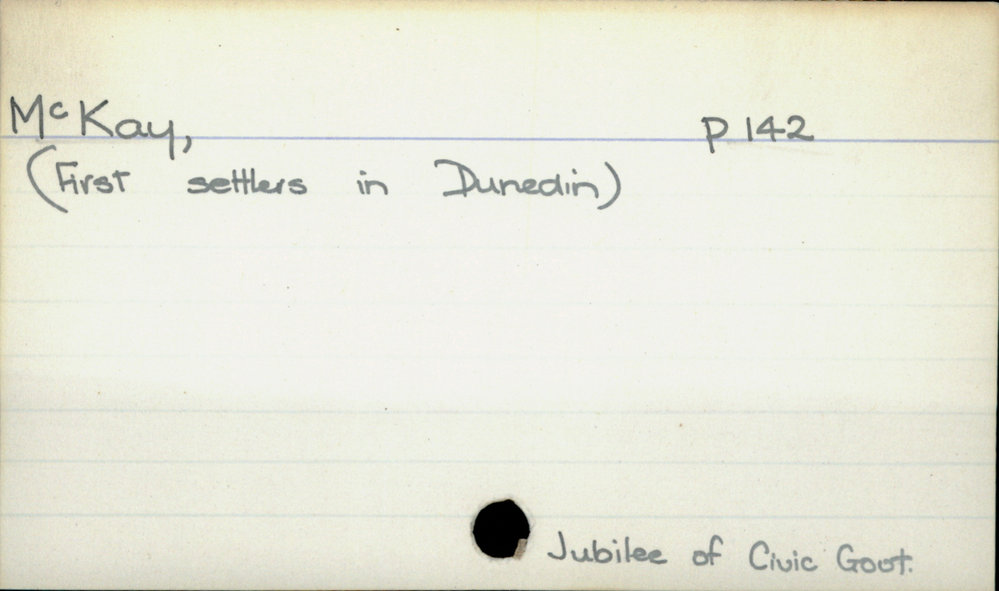 McKay, p 142
(First settlers in Dunedin)
Jubilee of Civic Govt.